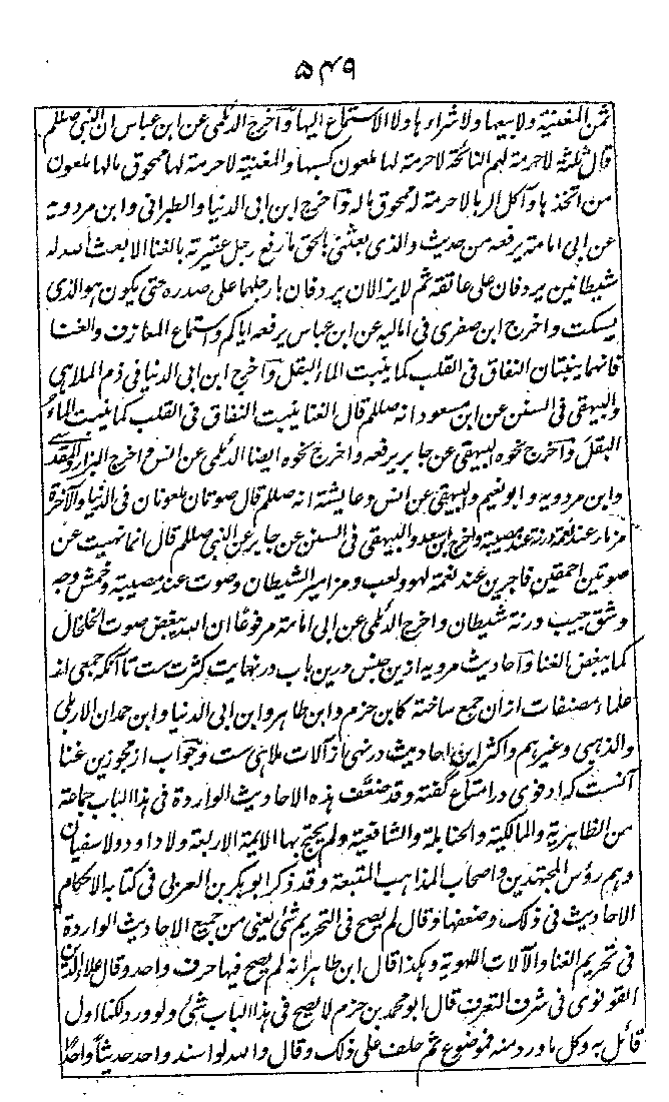 ۵۴۹
ثمن المغنیة ولا بیعها ولا شراءها ولا الاستماع الیها وآخرج الدیلمی عن ابن عباس ان النبی صللم
قال ثلثة لاحرمة لهم النائحة لاحرمة لها ملعون کسبها والمغنیة لاحرمة لها ممحوق مالها ملعون
من اتخذها وآکل الربا لاحرمة له ممحوق ماله وآخرج ابن ابی الدنیا والطبرانی وابن مردویه
عن ابی امامة یرفعه من حدیث والذی بعثنی بالحق ما رفع رجل عقیرته بالغنا الا بعث الله له
شیطانین یردفان علی عاتقه ثم لا یزالان یردفان بارجلهما علی صدره حتی یکون هو الذی
یسکت واخرج ابن صفری فی امالیه عن ابن عباس یرفعه ایاکم واستماع المعازف والغنا
فانهما ینبتان النفاق فی القلب کما ینبت الماء البقل وآخرج ابن ابی الدنیا فی ذم الملاهی
والبیهقی فی السنن عن ابن مسعود انه صللم قال الغنا ینبت النفاق فی القلب کما ینبت الماء
البقل وآخرج نحوه البیهقی عن جابر یرفعه واخرج نحوه ایضا الدیلمی عن انس واخرج البزار والمقدسی
وابن مردویه وابو نعیم والبیهقی عن انس وعایشة انه صللم قال صوتان ملعونان فی الدنیا والآخرة
مزمار عند نعمة ورنة عند مصیبة واخرج ابن سعد والبیهقی فی السنن عن جابر عن النبی صللم قال انما نهیت عن
صوتین احمقین فاجرین عند نغمة لهو ولعب ومزامیر الشیطان وصوت عند مصیبة وخمش وجه
وشق جیب ورنة شیطان واخرج الدیلمی عن ابی امامة مرفوعًا ان الله یبغض صوت الخلخال
کما یبغض الغنا وآحادیث مرویه ازین جنس درین باب در نهایت کثرت ست تا آنکه جمعی از
علماء مصنفات ازان جمع ساخته کابن حزم وابن طاهر وابن ابی الدنیا وابن حمدان الاربلی
والذهبی وغیرهم واکثر این احادیث در نهی از آلات ملاهی ست وجوآب از مجوزین غنا
آنست که ادفوی در امتاع گفته وقد ضعّف هذه الاحادیث الواردة فی هذا الباب جماعة
من الظاهریة والمالکیة والحنابلة والشافعیة ولم یحتج بها الایمة الاربعة ولا داود ولا سفیان
وهم رؤس المجتهدین واصحاب المذاهب المتبعة وقد ذکر ابو بکر بن العربی فی کتابه الاحکام
الاحادیث فی ذلک وضعفها وقال لم یصح فی التحریم شیٔ یعنی من جمیع الاحادیث الواردة
فی تحریم الغنا والآلات اللهویة وهکذا قال ابن طاهر انه لم یصح فیها حرف واحد وقال علاء الدین
القونوی فی شرف التعرف قال ابو محمد بن حزم لا یصح فی هذا الباب شیٔ ولو ورد لکنا اول
قائل به وکل ما ورد منه فموضوع ثم حلف علی ذلک وقال والله لو اسند واحد حدیثًا واحدًا